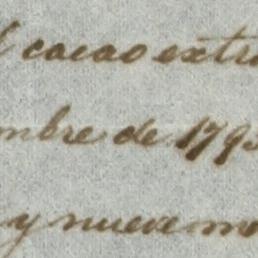 l cacao extra
mbre de 179
y nueve mo